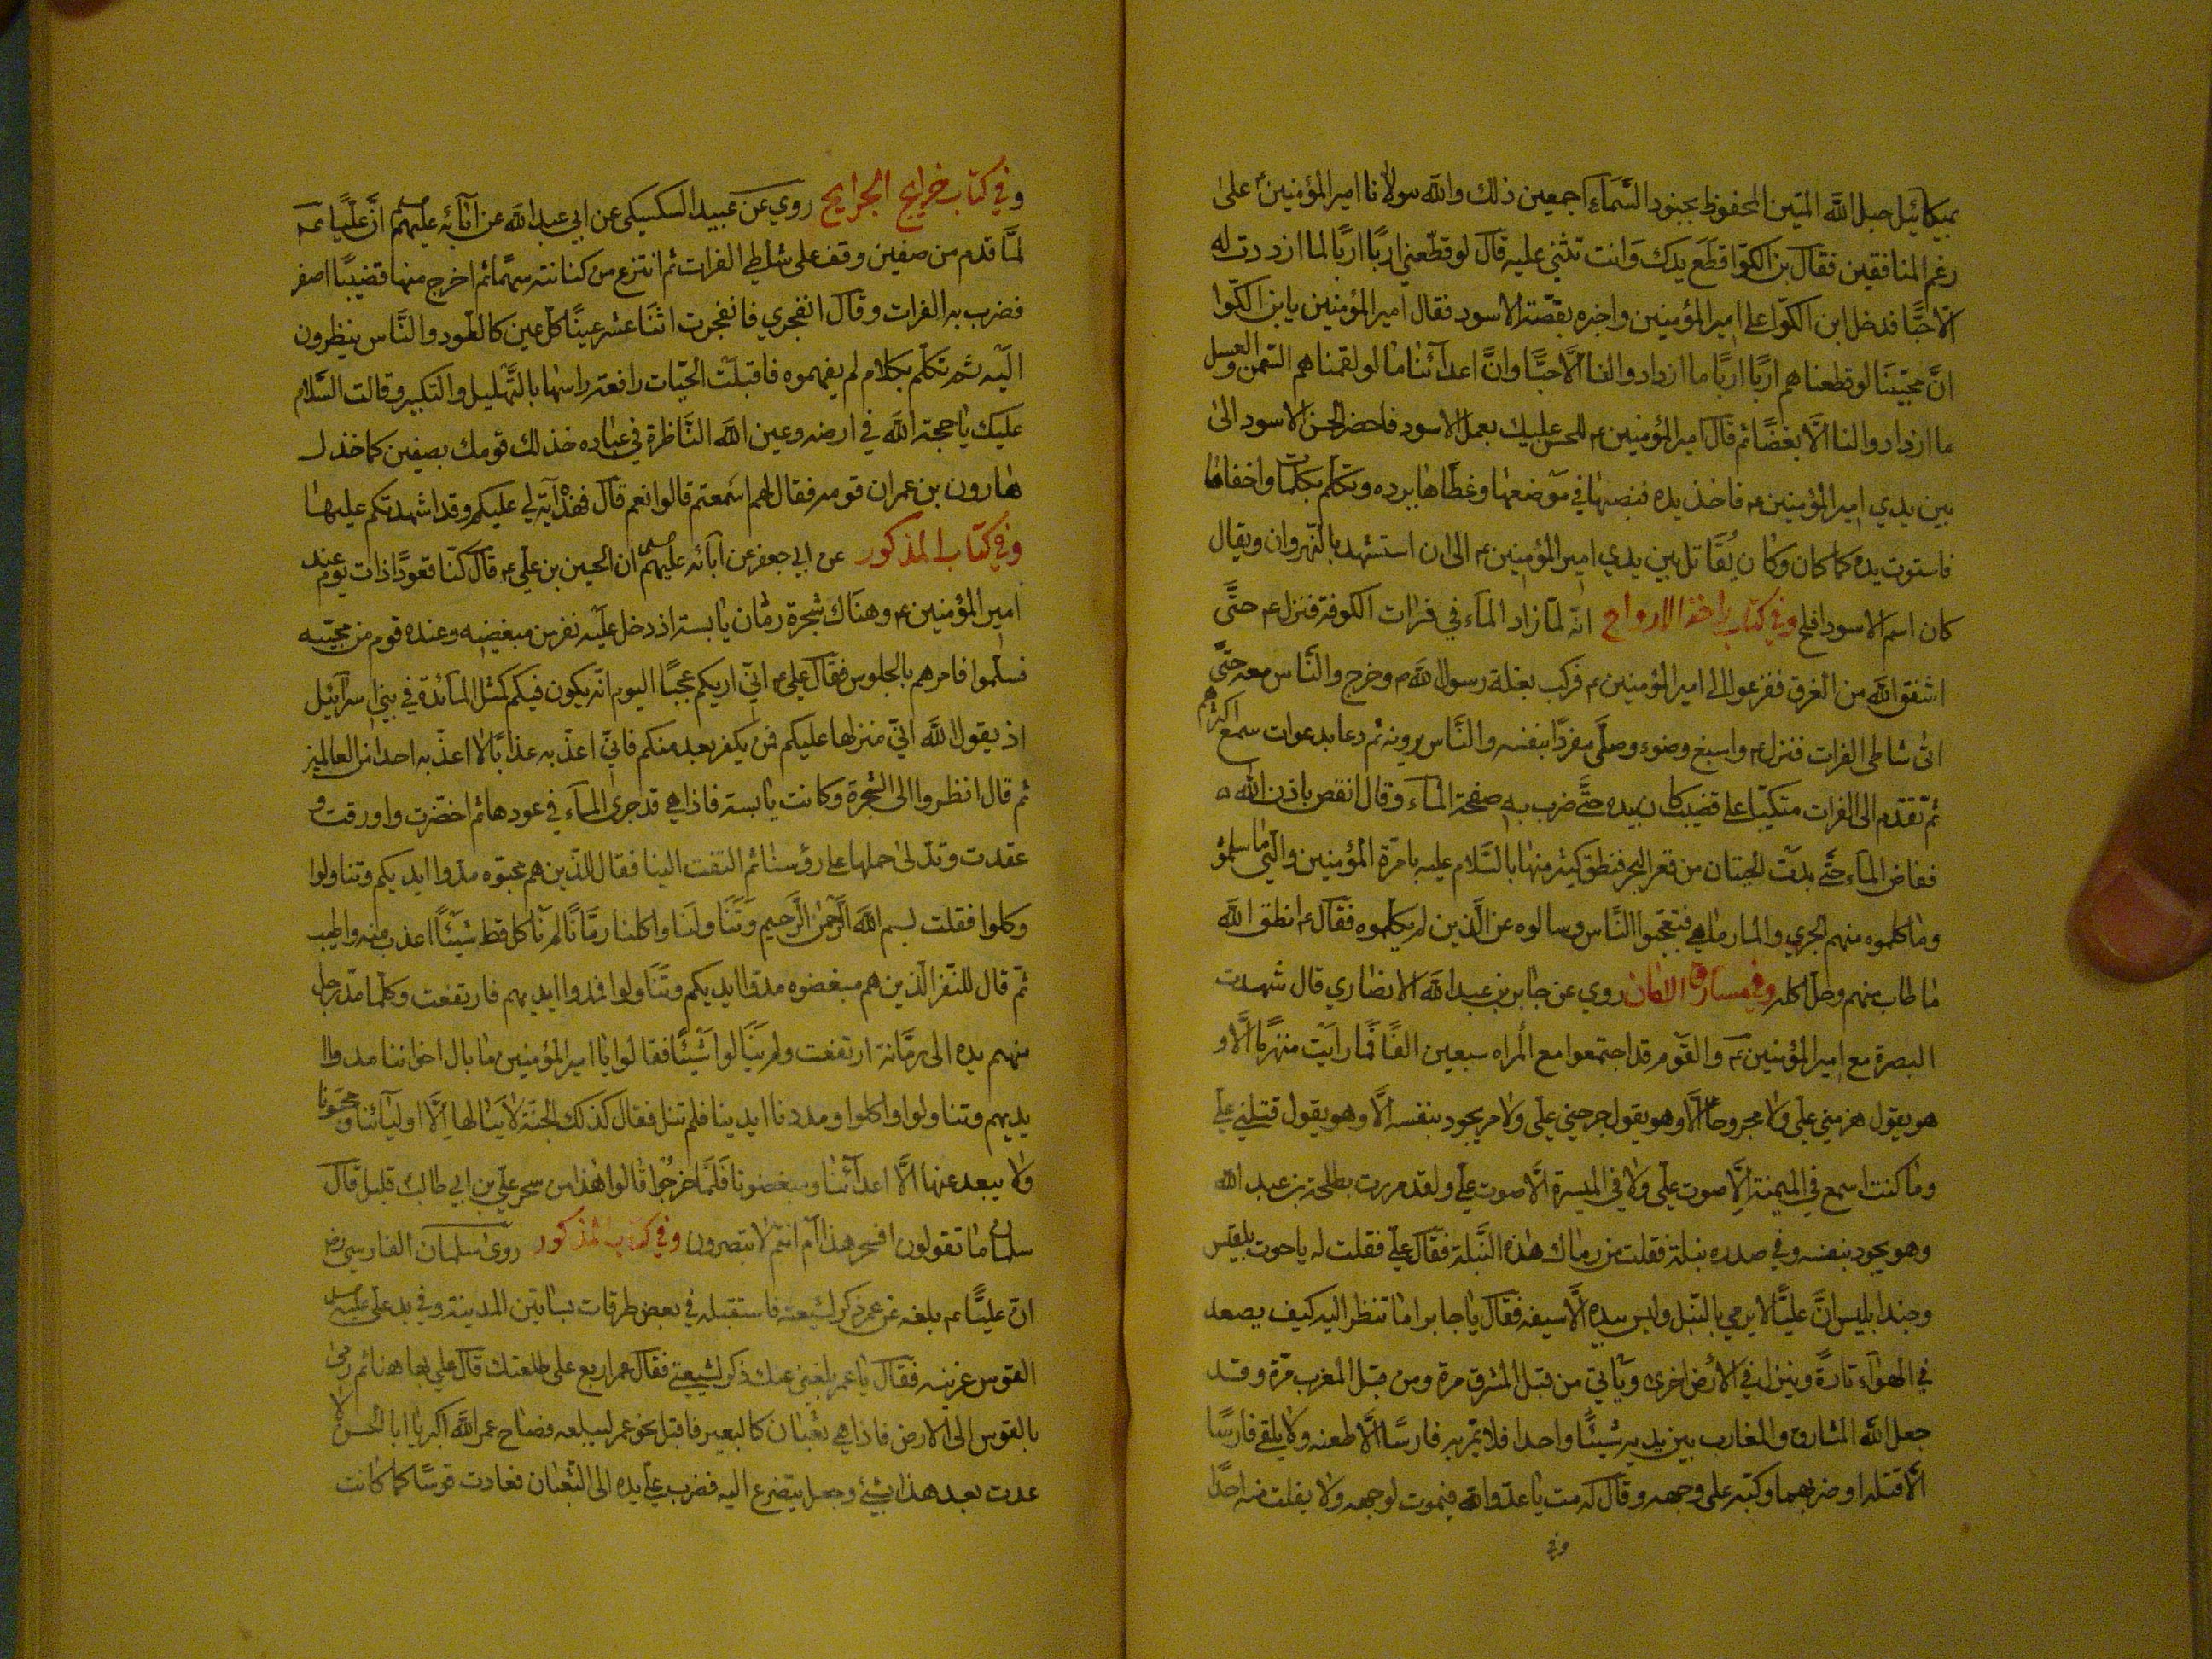 بميكائيل حبل الله المتين المحفوظ بجنود السَّمآء اجمعين ذلك والله مولانا امير المؤمنين ع على
رغم المنافقين فقال بن الكوّا قطَع يدك وَانت تثني عليه قال لو قطّعني اربًا اربًا لما ازددت له
الّا حبًّا فدخل ابن الكوّا على امير المؤمنين واخبره بقصّة الاسود فقال امير المؤمنين يابن الكوّا
انَّ محبّينَا لو قطعناهم اربًا اربًا ما ازدادوا لنا الّا حبًّا وانَّ اعدآئنا ما لو لقمناهم السّمن والعسل
ما ازدادوا لنا الّا بغضًا ثم قال امير المؤمنين ع للحسن عليك بعمك الاسود فاحضر الحسن الاسود الى
بين يدي امير المؤمنين ع فاخذ يده فنصبها في موضعها وغطّاها برده وتكلّم بكلمات واخفاها
فاستوت يده كما كان وكان يُقاتل بين يدي امير المؤمنين ع الى ان استشهد بالنّهروان ويقال
كان اسم الاسود افلح وفي كتاب راحة الارواح انّه لمّا زاد المآء في فرات الكوفة فنزل ع حتَّى
اشفق الله من الغرق ففزعوا الى امير المؤمنين ع فركب بغلة رسول الله ص وخرج والنَّاس معه حتَّى
اتى شاطى الفرات فنزل ع واسبغ وضوء وصلَّى مفردًا بنفسه والنَّاس يرونه ثم دعا بدعوات سمع اكثرهم
ثمّ تقدّم الى الفرات متكيًّا على قضيب كان بيده حتَّى ضرب به صفحة المآء وقال انقص باذن الله
ففاض المآء حتَّى بدَت الحيتان من قعر البحر فنطق كثير منها بالسَّلام عليه بامرة المؤمنين والّتي ما سلموا
وما كلموه منهم الجري والمارماهي فتعجّبوا النَّاس وسالوه عن الّذين لم يكلّموه فقال ع انطق الله
ما طاب منهم وحل اكله وفي مشارق الامان روي عن جابر بن عبد الله الانصاري قال شهدت
البصرة مع امير المؤمنين ع والقوم قد اجتمعوا مع المراه سبعين الفًا فما رايت منهزمًا الّا و
هو يقول هزمني علي ولا مجروحًا الّا وهو يقول جرحني علي ولا من يجود بنفسه الّا وهو يقول قتلني علي
وما كنت اسمع في الميمنة الّا صوت علي ولا في الميسرة الَّا صوت علي ولقد مررت بطلحة بن عبد الله
وهو يجود بنفسه وفي صدره نبلة فقلت من رماك هذه النَّبلة فقال علي فقلت له يا حزب بلقيس
وجند ابليس انَّ عليًّا لا يرمي بالنّبل وليس بيده الّا سيفه فقال يا جابر اما تنظر اليه كيف يصعد
في الهوآء تارةً وينزل في الأرض اخرى ويأتي من قبل المشرق مرة ومن قبل المغرب مرّة وقد
جعل الله المشارق والمغارب بين يديه شيئًا واحدا فلا يمرّ به فارسًا الّا طعنه ولا يلقى فارسًا
الّا قتله او ضربه او كبّه على وجهه وقال له مت يا عدوّ الله فيموت لوجهه ولا يفلت منه احدًا
وفي
وفي كتاب خرايج الجرايح روي عن عبيد السكسيكي عن ابي عبد الله عن آبآئه عليهم السلم انَّ عليًّا ع
لمَّا قدم من صفين وقف على شاطي الفرات ثم انتزع من كنانته سهمًا ثم اخرج منها قضيبًا اصفر
فضرب به الفرات وقال انفجري فانفجرت اثنَا عشر عينًا كلّ عين كالطود والنَّاس ينظرون
اليه ثم تكلّم بكلام لم يفهموه فاقبلت الحيّات رافعة راسها بالتَّهليل والتكبير وقالت السَّلام
عليك يا حجة الله في ارضه وعين الله النَّاظرة في عباده خذلك قومك بصيفين كما خذل
هارون بن عمران قومه فقال لهم اسَمعتم قالوا نعم قال فهذه آية لي عليكم وقد اشهدتكم عليها
وفي كتاب المذكور عن ابي جعفر عن آبآئه عليهم السلم ان الحسين بن علي ع قال كنّا قعودًا ذات يوم عند
امير المؤمنين ع وهناك شجرة رمّان يابسة اذ دخل عليه نفر من مبغضيه وعنده قوم من محبّيه
فسلّموا فامرهم بالجلوس فقال علي ع انّي اريكم عجبًا اليوم انّه يكون فيكم كمثل المآئدة في بني اسرآئيل
اذ يقول الله انّي منزلها عليكم فمن يكفر بعد منكم فانّي اعذّبه عذابًا لا اعذّبه احدا من العالمين
ثم قال انظروا الى الشجرة وكانت يابسة فاذا هي قد جرى المآء في عودها ثم اخضّرت واورقت و
عقدت وتدلى حملها على رؤسنا ثم التفت الينا فقال للذين هم محبّوه مدّوا ايديكم وتناولوا
وكلوا فقلت بسم الله الرّحمن الرّحيم وَتَنَاولنَا واكلنا رمّانًا لم نأكل قط شيئًا اعذب منه واطيب
ثمّ قال للنّفر الّذين هم مبغضوه مدّوا ايديكم وتَنَاولوا فمدوا ايديهم فارتفعت وكلّما مدّ رجل
منهم يده الى رمَّانة ارتفعت ولم يَنَالوا شيئًا فقالوا يا امير المؤمنين ما بال اخواننا مدوا ا
يديهم وتناولوا واكلوا ومددنا ايدينا فلم تنل فقال كذلك الجنّة لا يَنَالها الَّا اوليآئنا ومحبّونا
ولا يبعد عنها الَّا اعدآئنا ومبغضونا فلمّا خرجُوا قالوا هذا من سحر علي بن ابي طالب قليل قال
سلمان ما تقولون افسحر هذا ام انتم لا تبصرون وفي كتاب المذكور روى سلمان الفارسي رض
انّ عليًّا ع بلغه عن عمر ذكر لشيعته فاستقبله في بعض طرقات بساتين المدينة وفي يد علي عليه السلم
القوس عربيّه فقال يا عمر بلغني عنك ذكر لشيعتي فقال عمر اربع على ظلعتك قال علي بها هنا ثم رمى
بالقوس الى الارض فاذا هي ثعبان كالبعير فاقبل نحو عمر ليبلعه فصاح عمر الله اكبر يا ابا الحسن لا
عدت بعد هذا بشئ وجعل يتضرع اليه فضرب علي يده الى الثّعبان فعادت قوسًا كما كانت